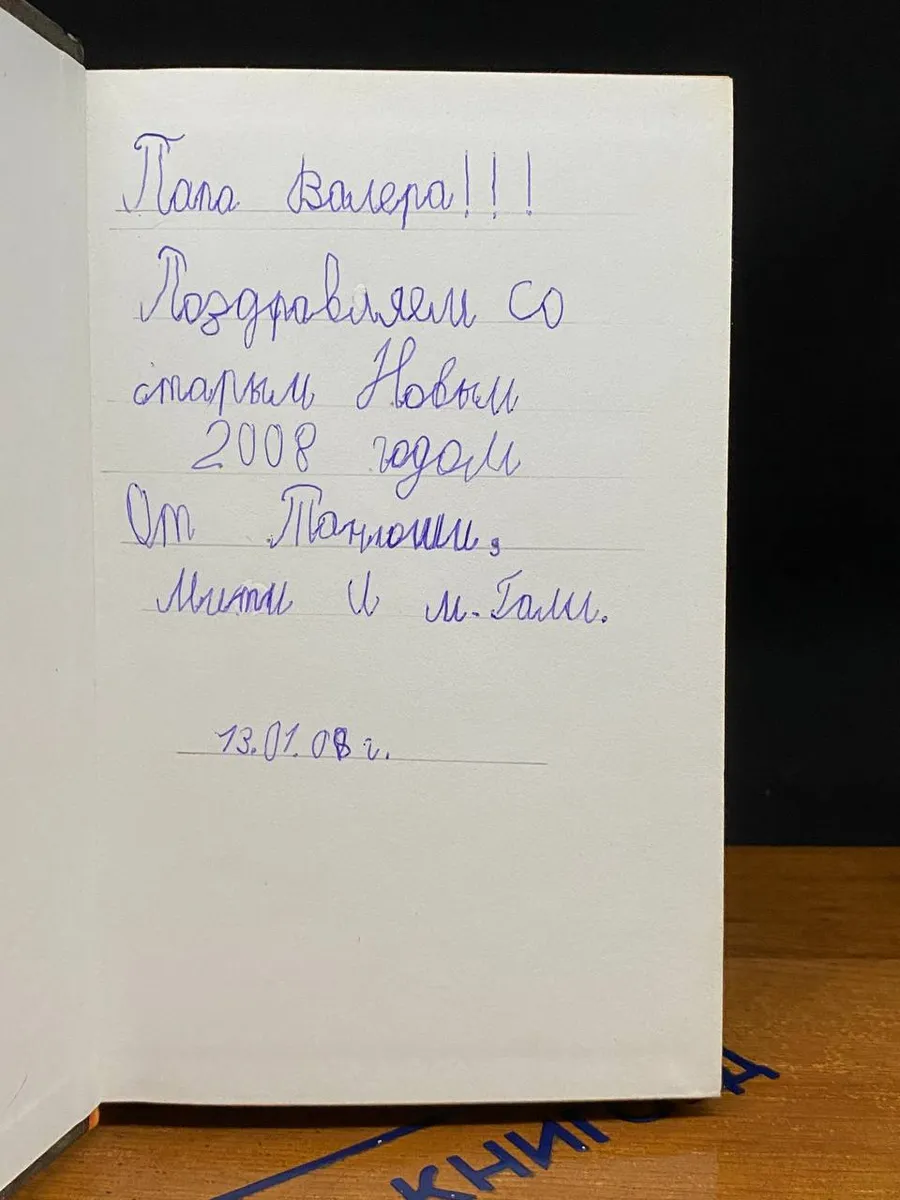 Папа Валера!!!
Поздравляем со
старым Новым
2008 годом
От Танюши,
Мити и м. Гали.
13.01.08 г.